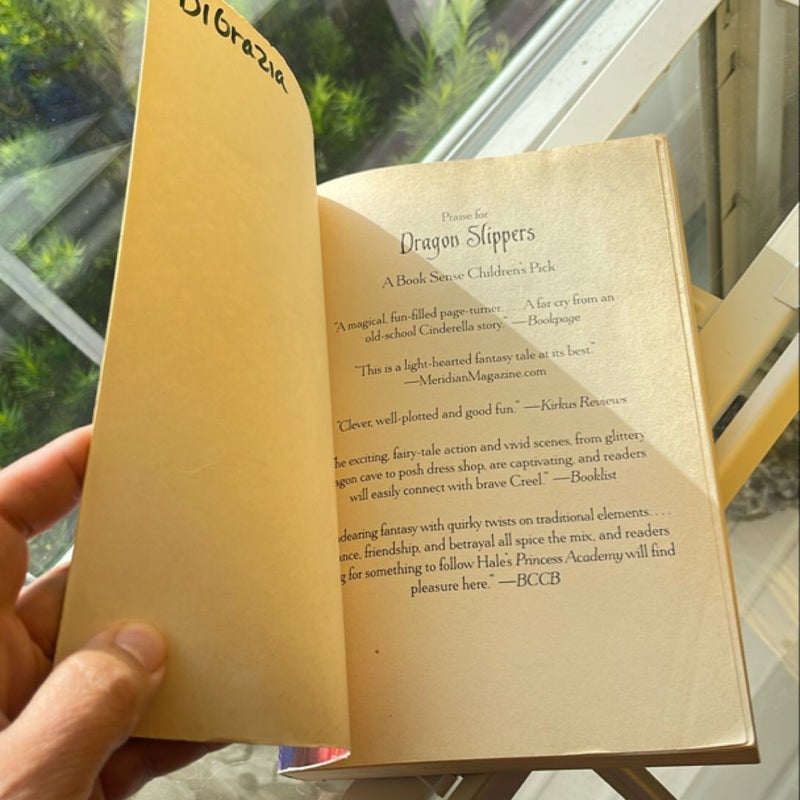 DiGrazia
Praise for
Dragon Slippers
A Book Sense Children's Pick
"A magical, fun-filled page-turner. . . . A far cry from an
old-school Cinderella story." —Bookpage
"This is a light-hearted fantasy tale at its best."
—MeridianMagazine.com
"Clever, well-plotted and good fun." —Kirkus Reviews
he exciting, fairy-tale action and vivid scenes, from glittery
agon cave to posh dress shop, are captivating, and readers
will easily connect with brave Creel." —Booklist
dearing fantasy with quirky twists on traditional elements. . . .
ance, friendship, and betrayal all spice the mix, and readers
g for something to follow Hale's Princess Academy will find
pleasure here." —BCCB